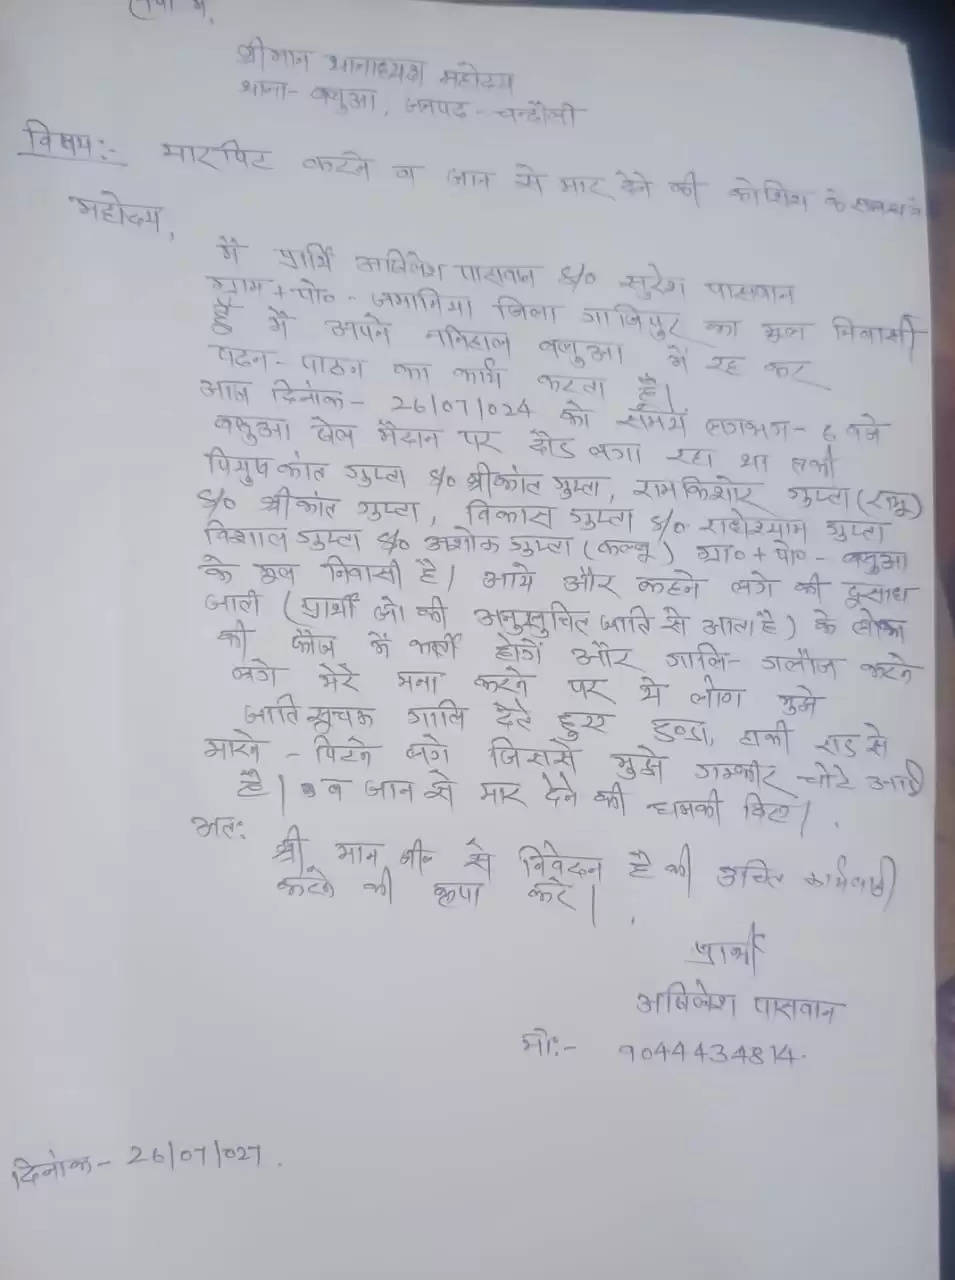 सेवा में,
श्रीमान थानाध्यक्ष महोदय
थाना- बबुआ, जनपद- चन्दौली
विषय:- मारपिट करने व जान से मार देने की कोशिश के सम्बन्ध में
महोदय,
मैं प्रार्थि अखिलेश पासवान S/o सुरेश पासवान
ग्राम + पो० - जमानिया जिला गाजिपुर का मुल निवासी
हूँ मैं अपने ननिहाल बबुआ में रह कर
पठन - पाठन का कार्य करता है।
आज दिनांक - 26/07/024 को समय लगभग - 6 बजे
बबुआ खेल मैदान पर दौड लगा रहा था तभी
पियुष कांत गुप्ता S/o श्रीकांत गुप्ता, रामकिशोर गुप्ता (राजू)
S/o श्रीकांत गुप्ता, विकास गुप्ता S/o राधेश्याम गुप्ता
विशाल गुप्ता S/o अशोक गुप्ता (कल्लू) ग्रा० + पो० - बबुआ
के मुल निवासी है। आये और कहने लगे की दुसाध
जाती (प्रार्थी जो की अनुसुचित जाति से आता है) के लोग
की फौज में भर्ती होगें और गालि- गलौज करने
लगे मेरे मना करने पर ये लोग मुझे
जाति सूचक गालि देते हुए डन्डा, हाकी राड से
मारने - पिटने लगे जिससे मुझे गम्भीर चोटे आई
है। व जान से मार देने की धमकी दिए।
अतः
श्री मान जी से निवेदन है की उचित कार्यवाही
करने की कृपा करे।
प्रार्थी
अखिलेश पासवान
मो:- 9044434814.
दिनांक - 26/07/024.